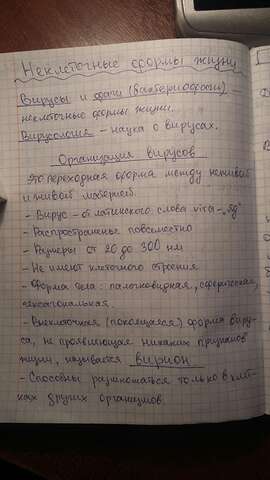 Неклеточные формы жизни
Вирусы и фаги (бактериофаги)
неклеточные формы жизни.
Вирусология - наука о вирусах.
Организация вирусов
Это переходная форма между неживой
и живой материей.
- Вирус - от латинского слова vira - "яд"
- Распространены повсеместно
- Размеры от 20 до 300 нм
- Не имеют клеточного строения
- Форма тела: палочковидная, сферическая,
гексагональная.
- Внеклеточная (покоящаяся) форма виру-
са, не проявляющая никаких признаков
жизни, называется вирион
- Способны размножаться только в клет-
ках других организмов.